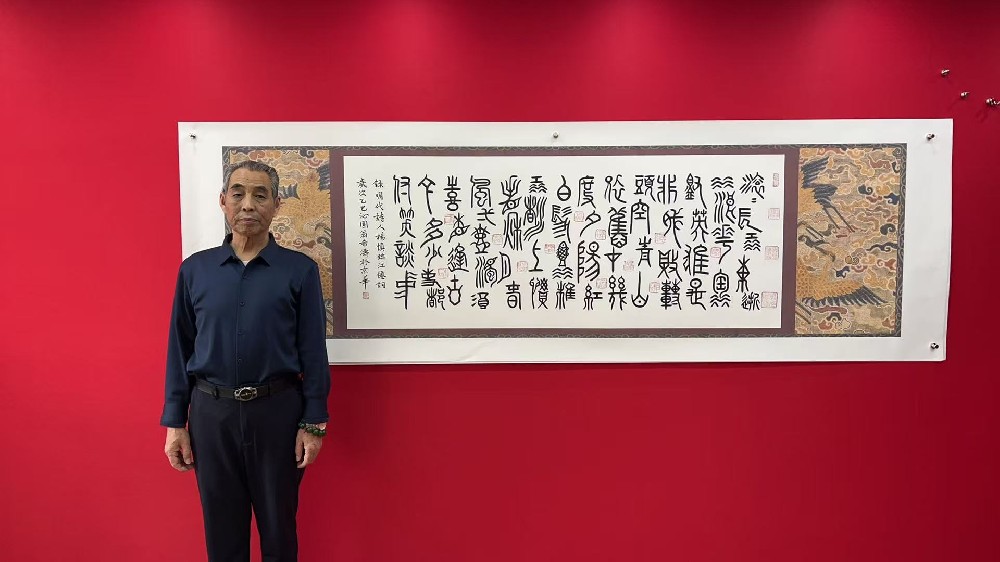 滾〻長江東逝
水浪花淘
盡英雄是
非成敗轉
頭空青山
依舊在幾
度夕陽紅
白髮漁樵
江渚上慣
看秋月春
風一壺濁酒
喜相逢古
今多少事都
付笑談中
錄明代詩人楊慎臨江僊詞
歲次乙巳沁園翁希濟於京華